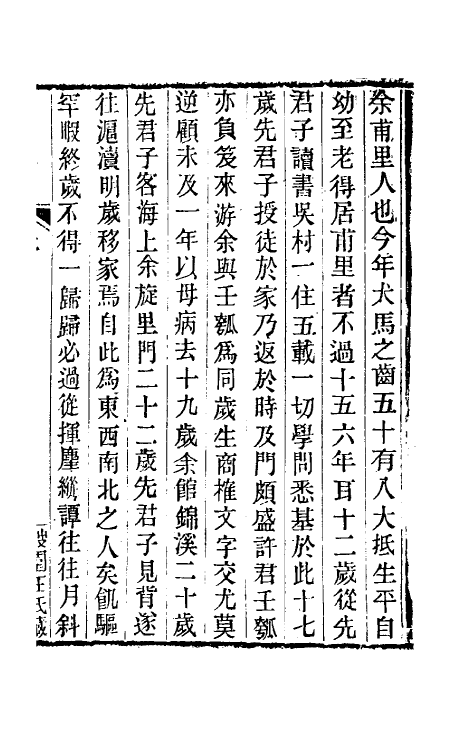 余甫里人也今年犬馬之齒五十有八大抵生平自
幼至老得居甫里者不過十五六年耳十二歲從先
君子讀書吳村一住五載一切學問悉基於此十七
歲先君子授徒於家乃返於時及門頗盛許君壬瓠
亦負笈來游余與壬瓠爲同歲生商榷文字交尤莫
逆顧未及一年以母病去十九歲余館錦溪二十歲
先君子客海上余旋里門二十二歲先君子見背遂
往滬瀆明歲移家焉自此爲東西南北之人矣飢驅
罕暇終歲不得一歸歸必過從揮麈縱譚往往月斜
王氏藏